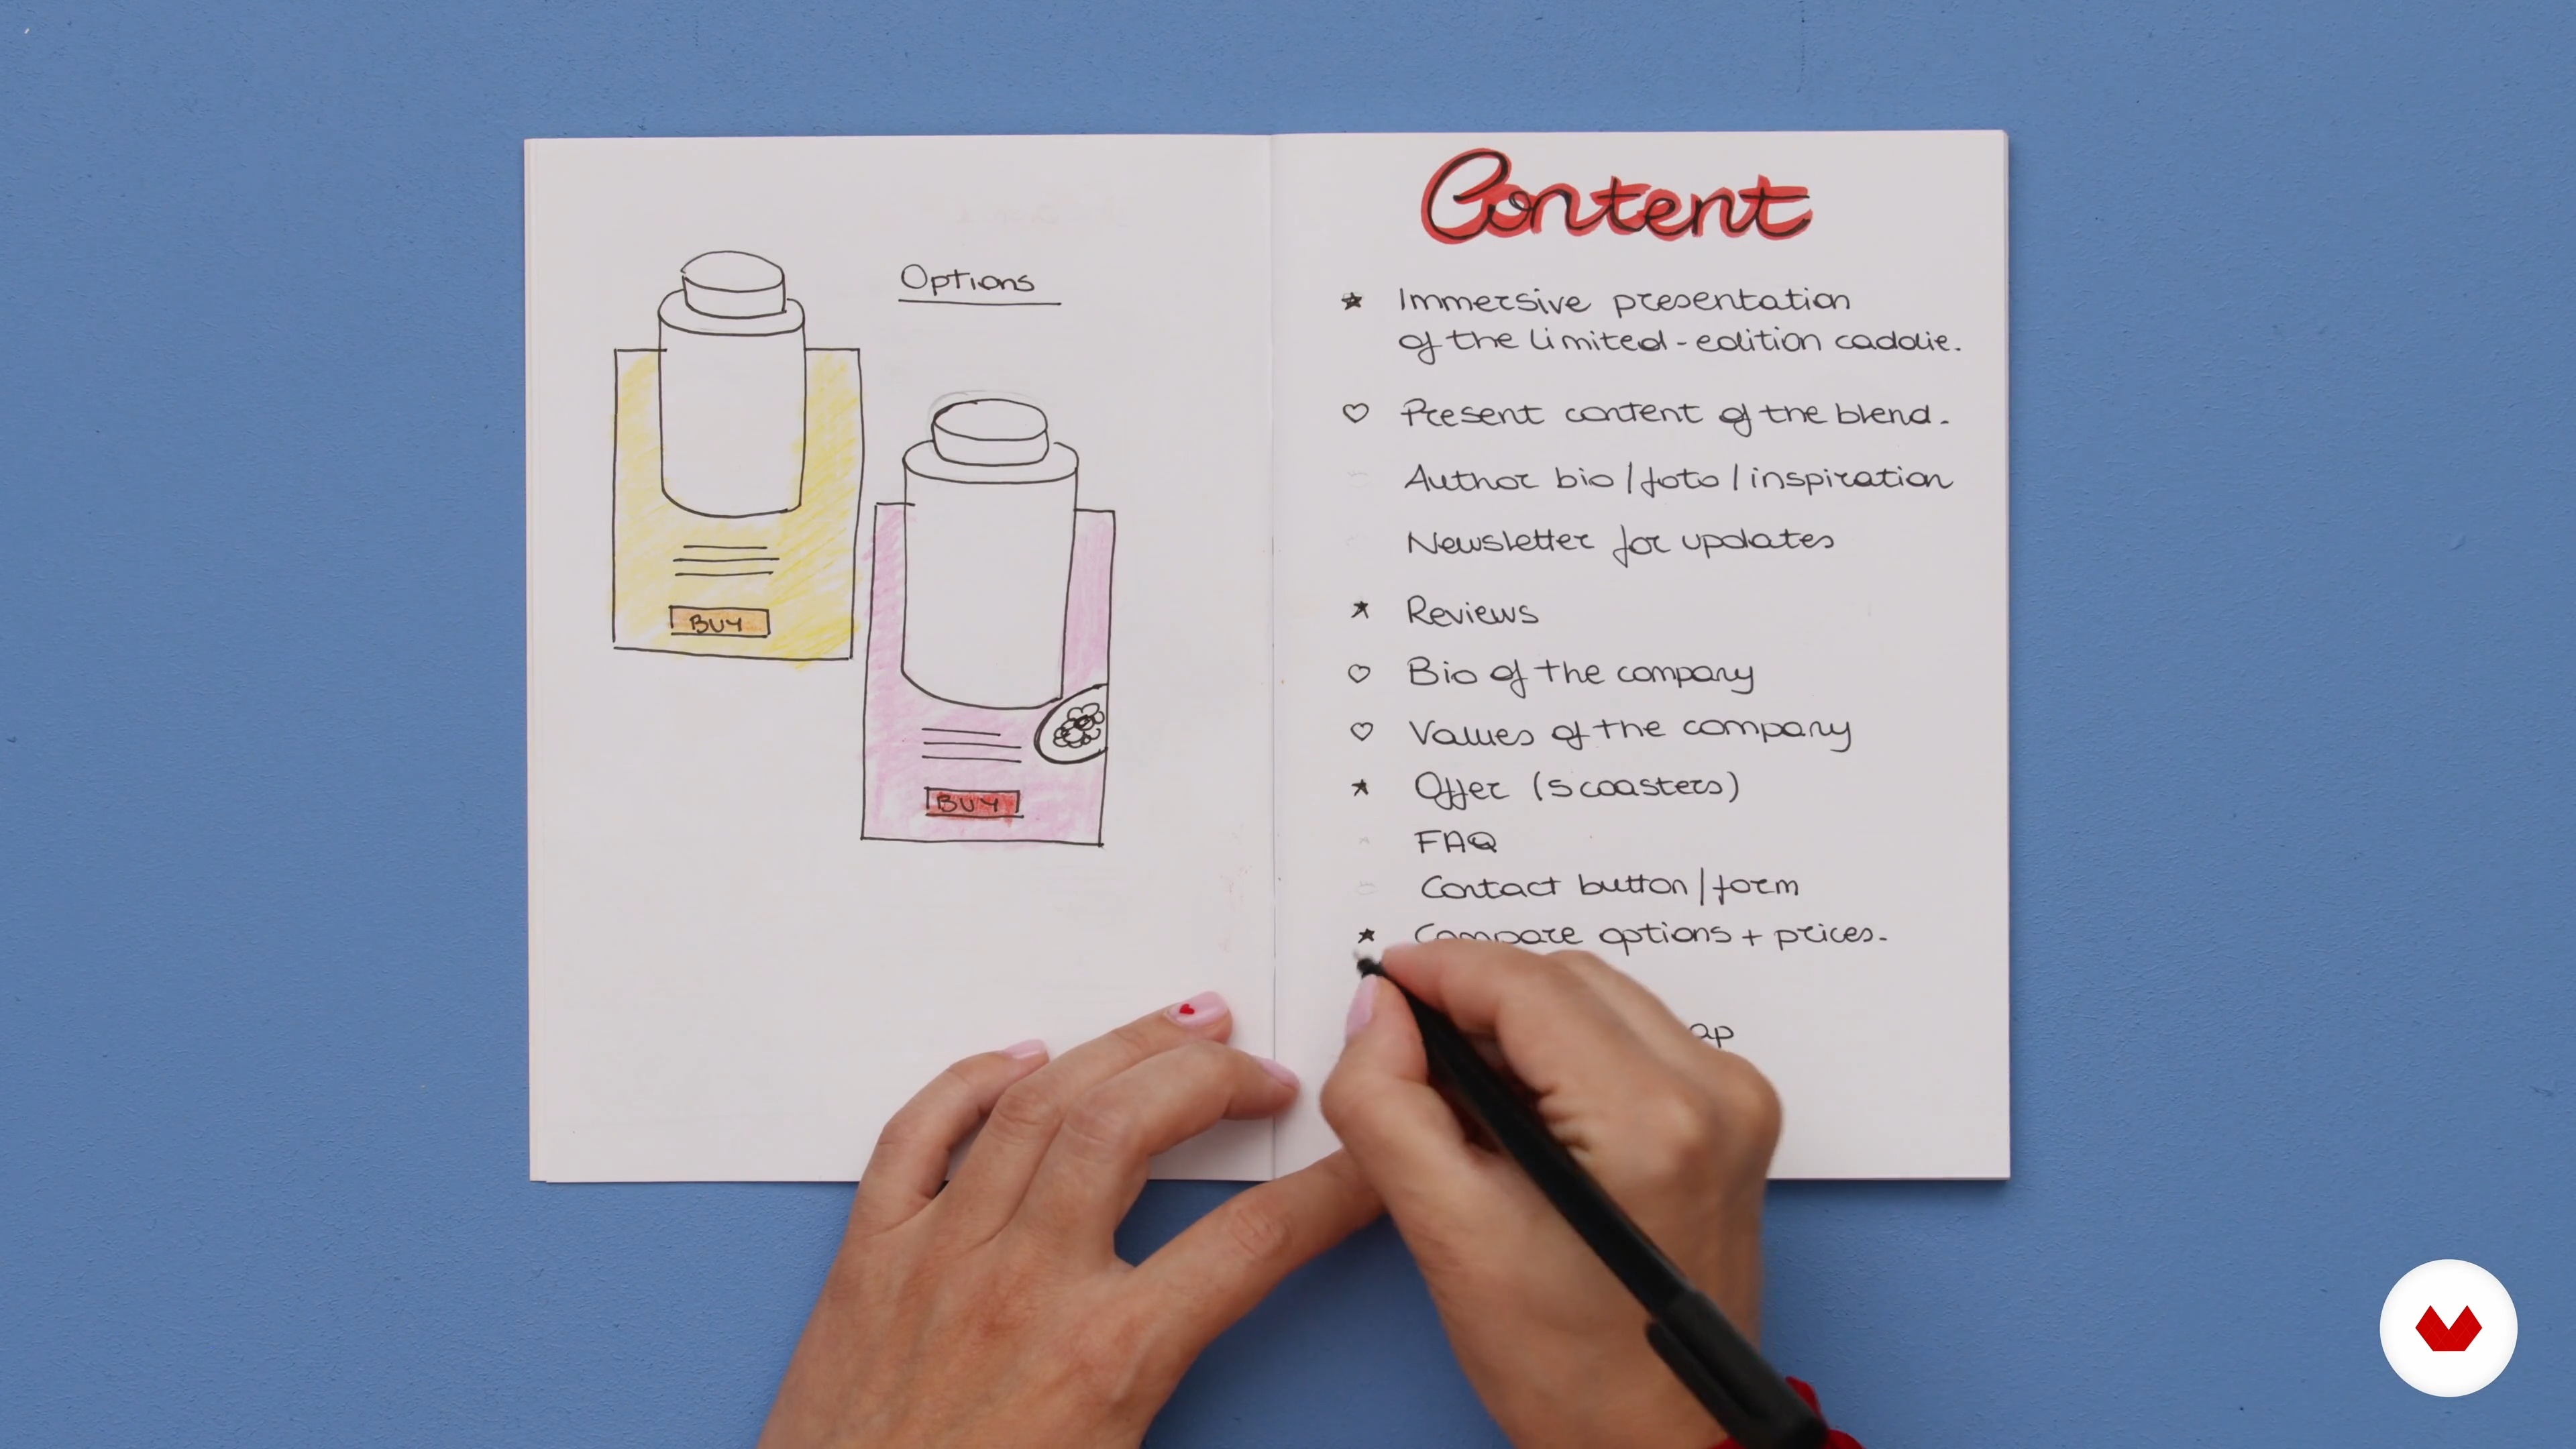 Options
BUY
BUY
Content
Immersive presentation
of the limited-edition caddie.
Present content of the blend.
Author bio/foto/inspiration
Newsletter for updates
Reviews
Bio of the company
Values of the company
Offer (5 coasters)
FAQ
Contact button/form
Compare options + prices.